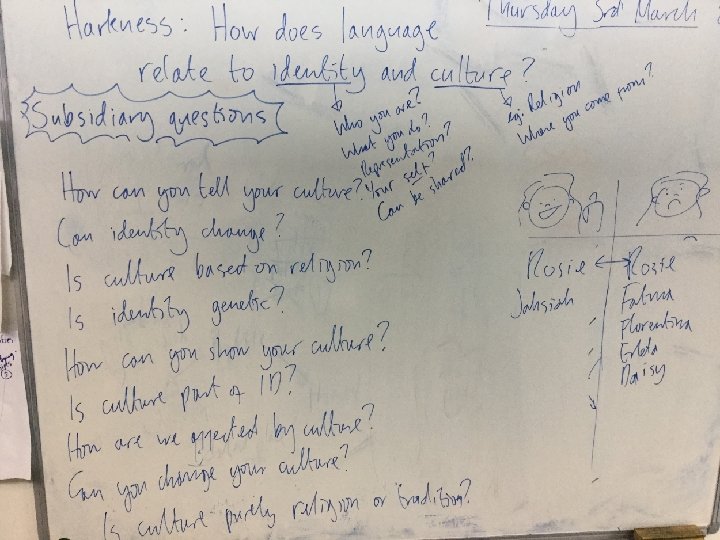 Thursday 3rd March
Harkness: How does language
relate to identity and culture?
Subsidiary questions
Who you are?
What you do?
Representation?
Your self?
Can be shared?
eg. Religion
Where you come from?
How can you tell your culture?
Can identity change?
Is culture based on religion?
Is identity genetic?
How can you show your culture?
Is culture part of ID?
How are we affected by culture?
Can you change your culture?
Is culture purely religion or tradition?
Rosie
Jahsiah
Rosie
Fatma
Florentina
Daisy